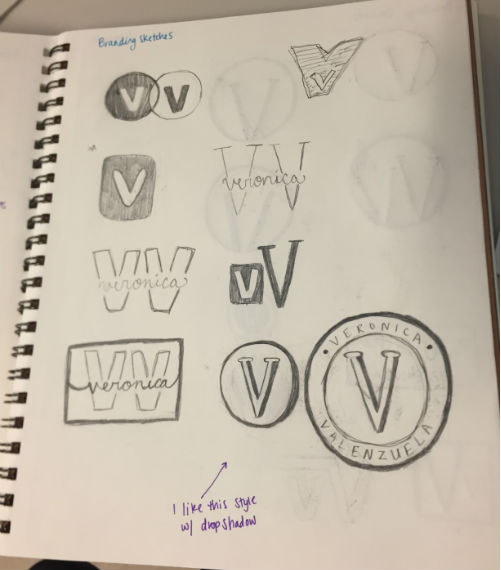 Branding sketches
V V
V
V
VV
veronica
VV
veronica
V V
VV
veronica
V
VERONICA
V
VALENZUELA
I like this style
w/ dropshadow